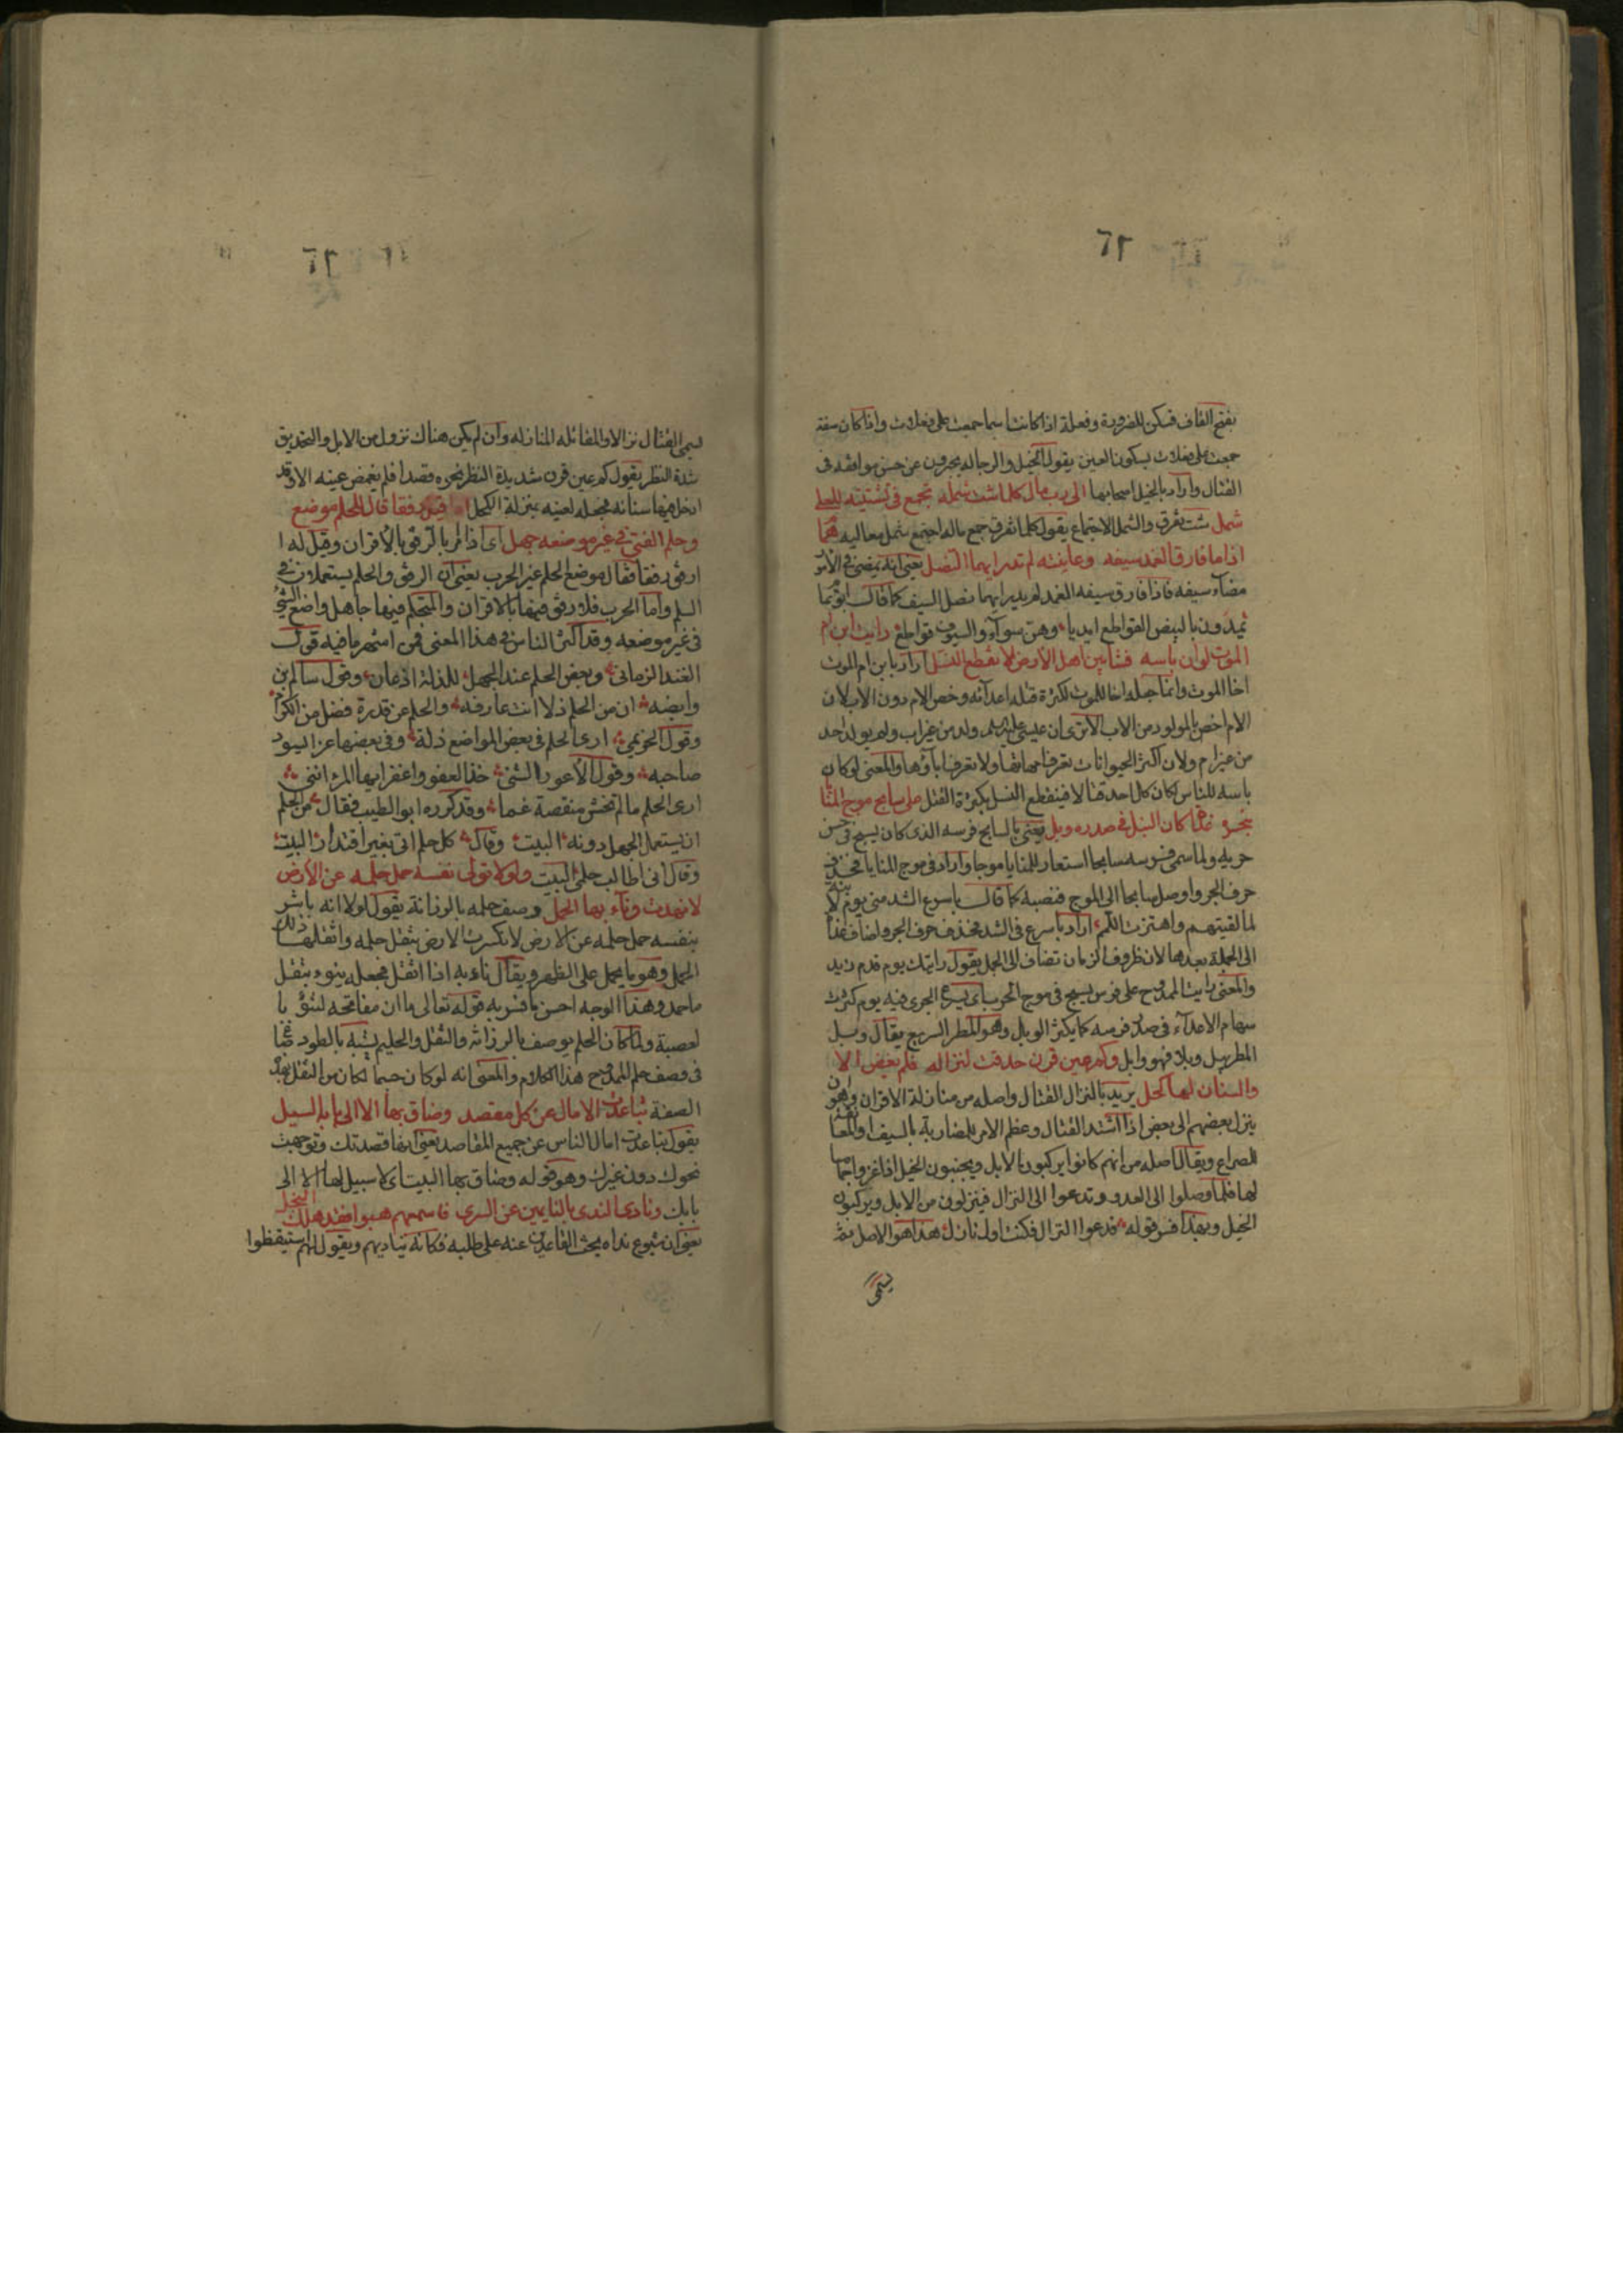 ٦٢
بفتح القاف فسكن للضرورة وفعلة اذا كانت اسما جمعت على فعلات واذا كان صفة
جمعت على فعلات بسكون العين يقول الخيل والرجالة يخبرون عن حسن مواقفه فى
القتال واراد بالخيل اصحابها الى رب مال كلما شت شمله تجمع فى تشتيته للعلى
شمل شت تفرق والشمل الاجتماع يقول كلما تفرق جمع ماله اجتمع شمل معاليه همام
اذا ما فارق الغمد سيفه وعاينته لم تدر ايهما النصل يعنى انه يمضى فى الامور
مضاء سيفه فاذا فارق سيفه الغمد لم يدر ايهما نصل السيف كما قال ابو تمام
يمدون بالبيض القواطع ايديا وهن سواء والسيوف قواطع رايت ابن ام
الموت لو ان باسه فشا بين اهل الارض لا نقطع النسل اراد بابن ام الموت
اخا الموت وانما جعله اخا للموت لكثرة قتله اعدائه وخص الام دون الاب لان
الام اخص بالمولود من الاب الا ترى ان عيسى عليه السلم ولد من غير اب ولم يولد احد
من غير ام ولان اكثر الحيوانات تعرف امهاتها ولا تعرف اباؤها والمعنى لو كان
باسه للناس لكان كل احد قتالا فينقطع النسل بكثرة القتل على سابح موج المنايا
بنحره غداة كان النبل فى صدره وبل يعنى بالسابح فرسه الذى كان يسبح فى حسن
جريه ولما سمى فرسه سابحا استعار للمنايا موجا واراد فى موج المنايا فحذف
حرف الجر واوصل سابحا الى الموج فنصبه كما قال باسرع الشد منى يوم لا نية
لما لقيتهم واهتزت اللمم اراد باسرع فى الشد فحذف حرف الجر واضاف غداة
الى الجملة بعدها لان ظروف الزمان تضاف الى الجمل يقول رايتك يوم قدم زيد
والمعنى رايت الممدوح على فرس يسبح فى موج الحرب اى يسرع الجرى فيه يوم كثرت
سهام الاعداء فى صدر فرسه كما يكثر الوبل وهو المطر السريع يقال وبل
المطر يبل وبلا فهو وابل وكم عين قرن حدقت لنزاله فلم تغض الا
والسنان لها كحل يريد بالنزال القتال واصله من منازلة الاقران وهو ان
ينزل بعضهم الى بعض اذا اشتد القتال وعظم الامر للمضاربة بالسيف او المعانقة
للصراع ويقال اصله من انهم كانوا يركبون الابل ويجنبون الخيل اذا غزوا اجماما
لها فلما وصلوا الى العدو وتدعوا الى النزال فينزلون من الابل ويركبون
الخيل وبهذا فسر قوله فدعوا النزال فكنت اول نازل هذا هو الاصل ثم
يسمى
٦٢
يسمى القتال نزالا والمقاتلة المنازلة وان لم يكن هناك نزول من الابل والتحديق
شدة النظر يقول كم عين قرن شديدة النظر نحوه قصدا فلم يغمض عينه الا وقد
ادخل فيها سنانه فجعله لعينه بمنزلة الكحل اذا قيل رفقا قال للحلم موضع
وحلم الفتى فى غير موضعه جهل اى اذا امر بالرفق بالاقران وقيل له ا
ارفق رفقا قال موضع الحلم غير الحرب يعنى ان الرفق والحلم يستعملان فى
السلم واما الحرب فلا رفق فيها بالاقران والمتحلم فيها جاهل واضع الشئ
فى غير موضعه وقد اكثر الناس فى هذا المعنى فمن اشهر ما فيه قول
الفند الزمانى وبعض الحلم عند الجهل للذلة اذعان وقول سالم بن
وابصة ان من الحلم ذلا انت عارفه والحلم عن قدرة فضل من الكرم
وقول الخريمى ارى الحلم فى بعض المواضع ذلة وفى بعضها عزا يسود
صاحبه وقول الاعور الشنى خذ العفو واغفر ايها المرء اننى
ارى الحلم ما لم تخش منقصة غنما وقد كرره ابو الطيب فقال من الحلم
ان يستعمل الجهل دونه البيت وقال كل حلم اتى بغير اقتدار البيت
وقال انى اطالب حلمى البيت ولولا تولى نفسه حمل حلمه عن الارض
لانهدت وناء بها الحمل وصف حلمه بالرزانة يقول لولا انه باشر
بنفسه حمل حلمه عن الارض لانكسرت الارض بثقل حلمه واثقلها ذلك
الحمل وهو ما يحمل على الظهر ويقال ناء به اذا اثقل فجعله ينوء بثقل
ما حمله وهذا الوجه احسن ما فسر به قوله تعالى ما ان مفاتحه لتنوء با
لعصبة ولما كان الحلم يوصف بالرزانة والثقل والحليم يشبه بالطود
فى وصف حلم الممدوح هذا الكلام والمعنى انه لو كان جسما لكان من الثقل بهذه
الصفة تباعدت الامال عن كل مقصد وضاق بها الا الى بابه السبيل
يقول تباعدت امال الناس عن جميع المقاصد يعنى انها قصدتك وتوجهت
نحوك دون غيرك وهو قوله وضاق بها البيت اى لا سبيل لها الا الى
بابك ونادى الندى بالنايمين عن السرى فاسمعهم هبوا فقد هلك البخل
يعنى ان شيوع نداه يحث القاعدين عنه على طلبه فكانه يناديهم ويقول لهم استيقظوا